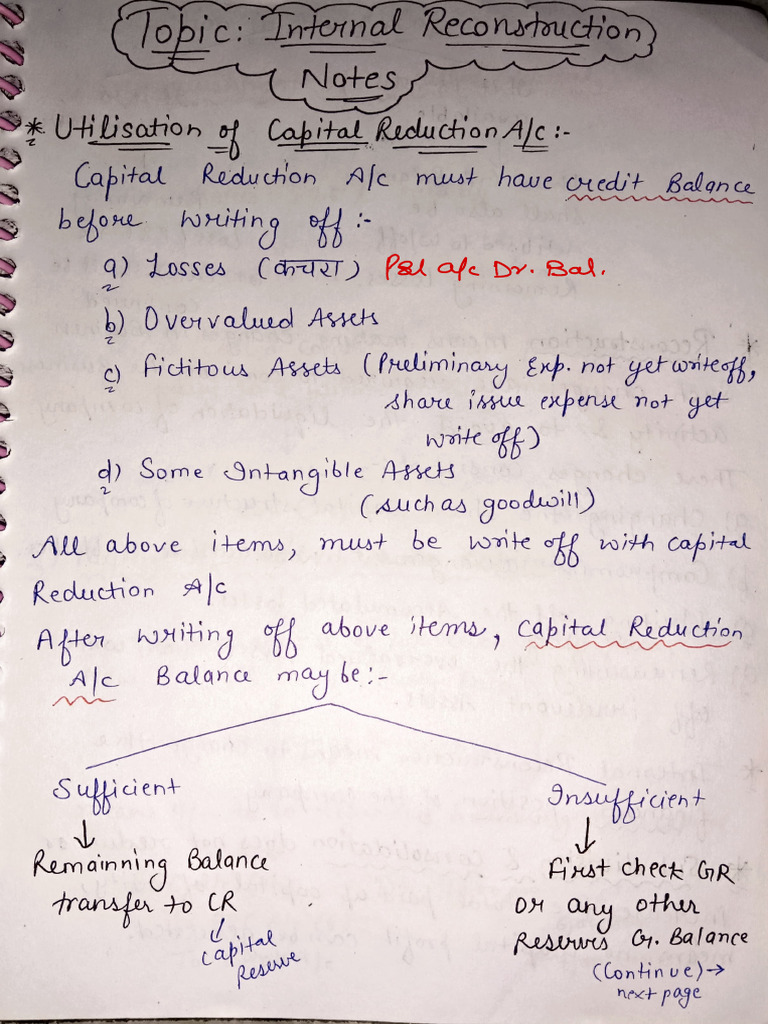 Topic: Internal Reconstruction
Notes
* Utilisation of Capital Reduction A/c :-
Capital Reduction A/c must have credit Balance
before writing off :-
a) Losses (कचरा) P&l a/c Dr. Bal.
b) Overvalued Assets
c) Fictitous Assets (Preliminary Exp. not yet write off,
share issue expense not yet
write off)
d) Some Intangible Assets
(such as goodwill)
All above items, must be write off with capital
Reduction A/c
After writing off above items, Capital Reduction
A/c Balance may be :-
Sufficient
Insufficient
↓
↓
Remainning Balance
First check GR
transfer to CR
or any other
↓
Capital
Reserve
Reserves Cr. Balance
(Continue) →
next page